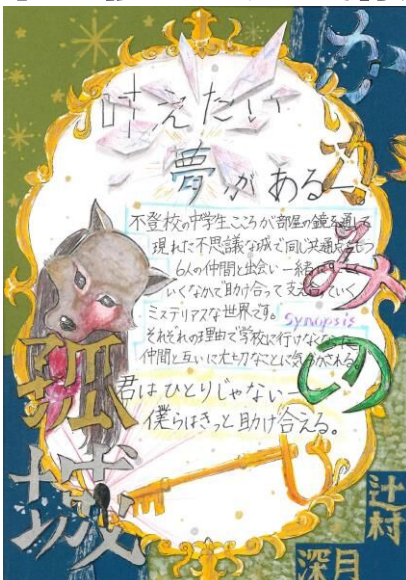 かがみの
叶えたい
夢がある―。
不登校の中学生こころが部屋の鏡を通して
現れた不思議な城で同じ共通点をもつ
6人の仲間と出会い一緒に
いくなかで助け合って支え いく
ミステリアスな世界です。
synopsis
それぞれの理由で学校に行けなく
仲間と互いに大切なことに気づかされる。
孤城
君はひとりじゃない―
僕らはきっと助け合える。
辻村
深月